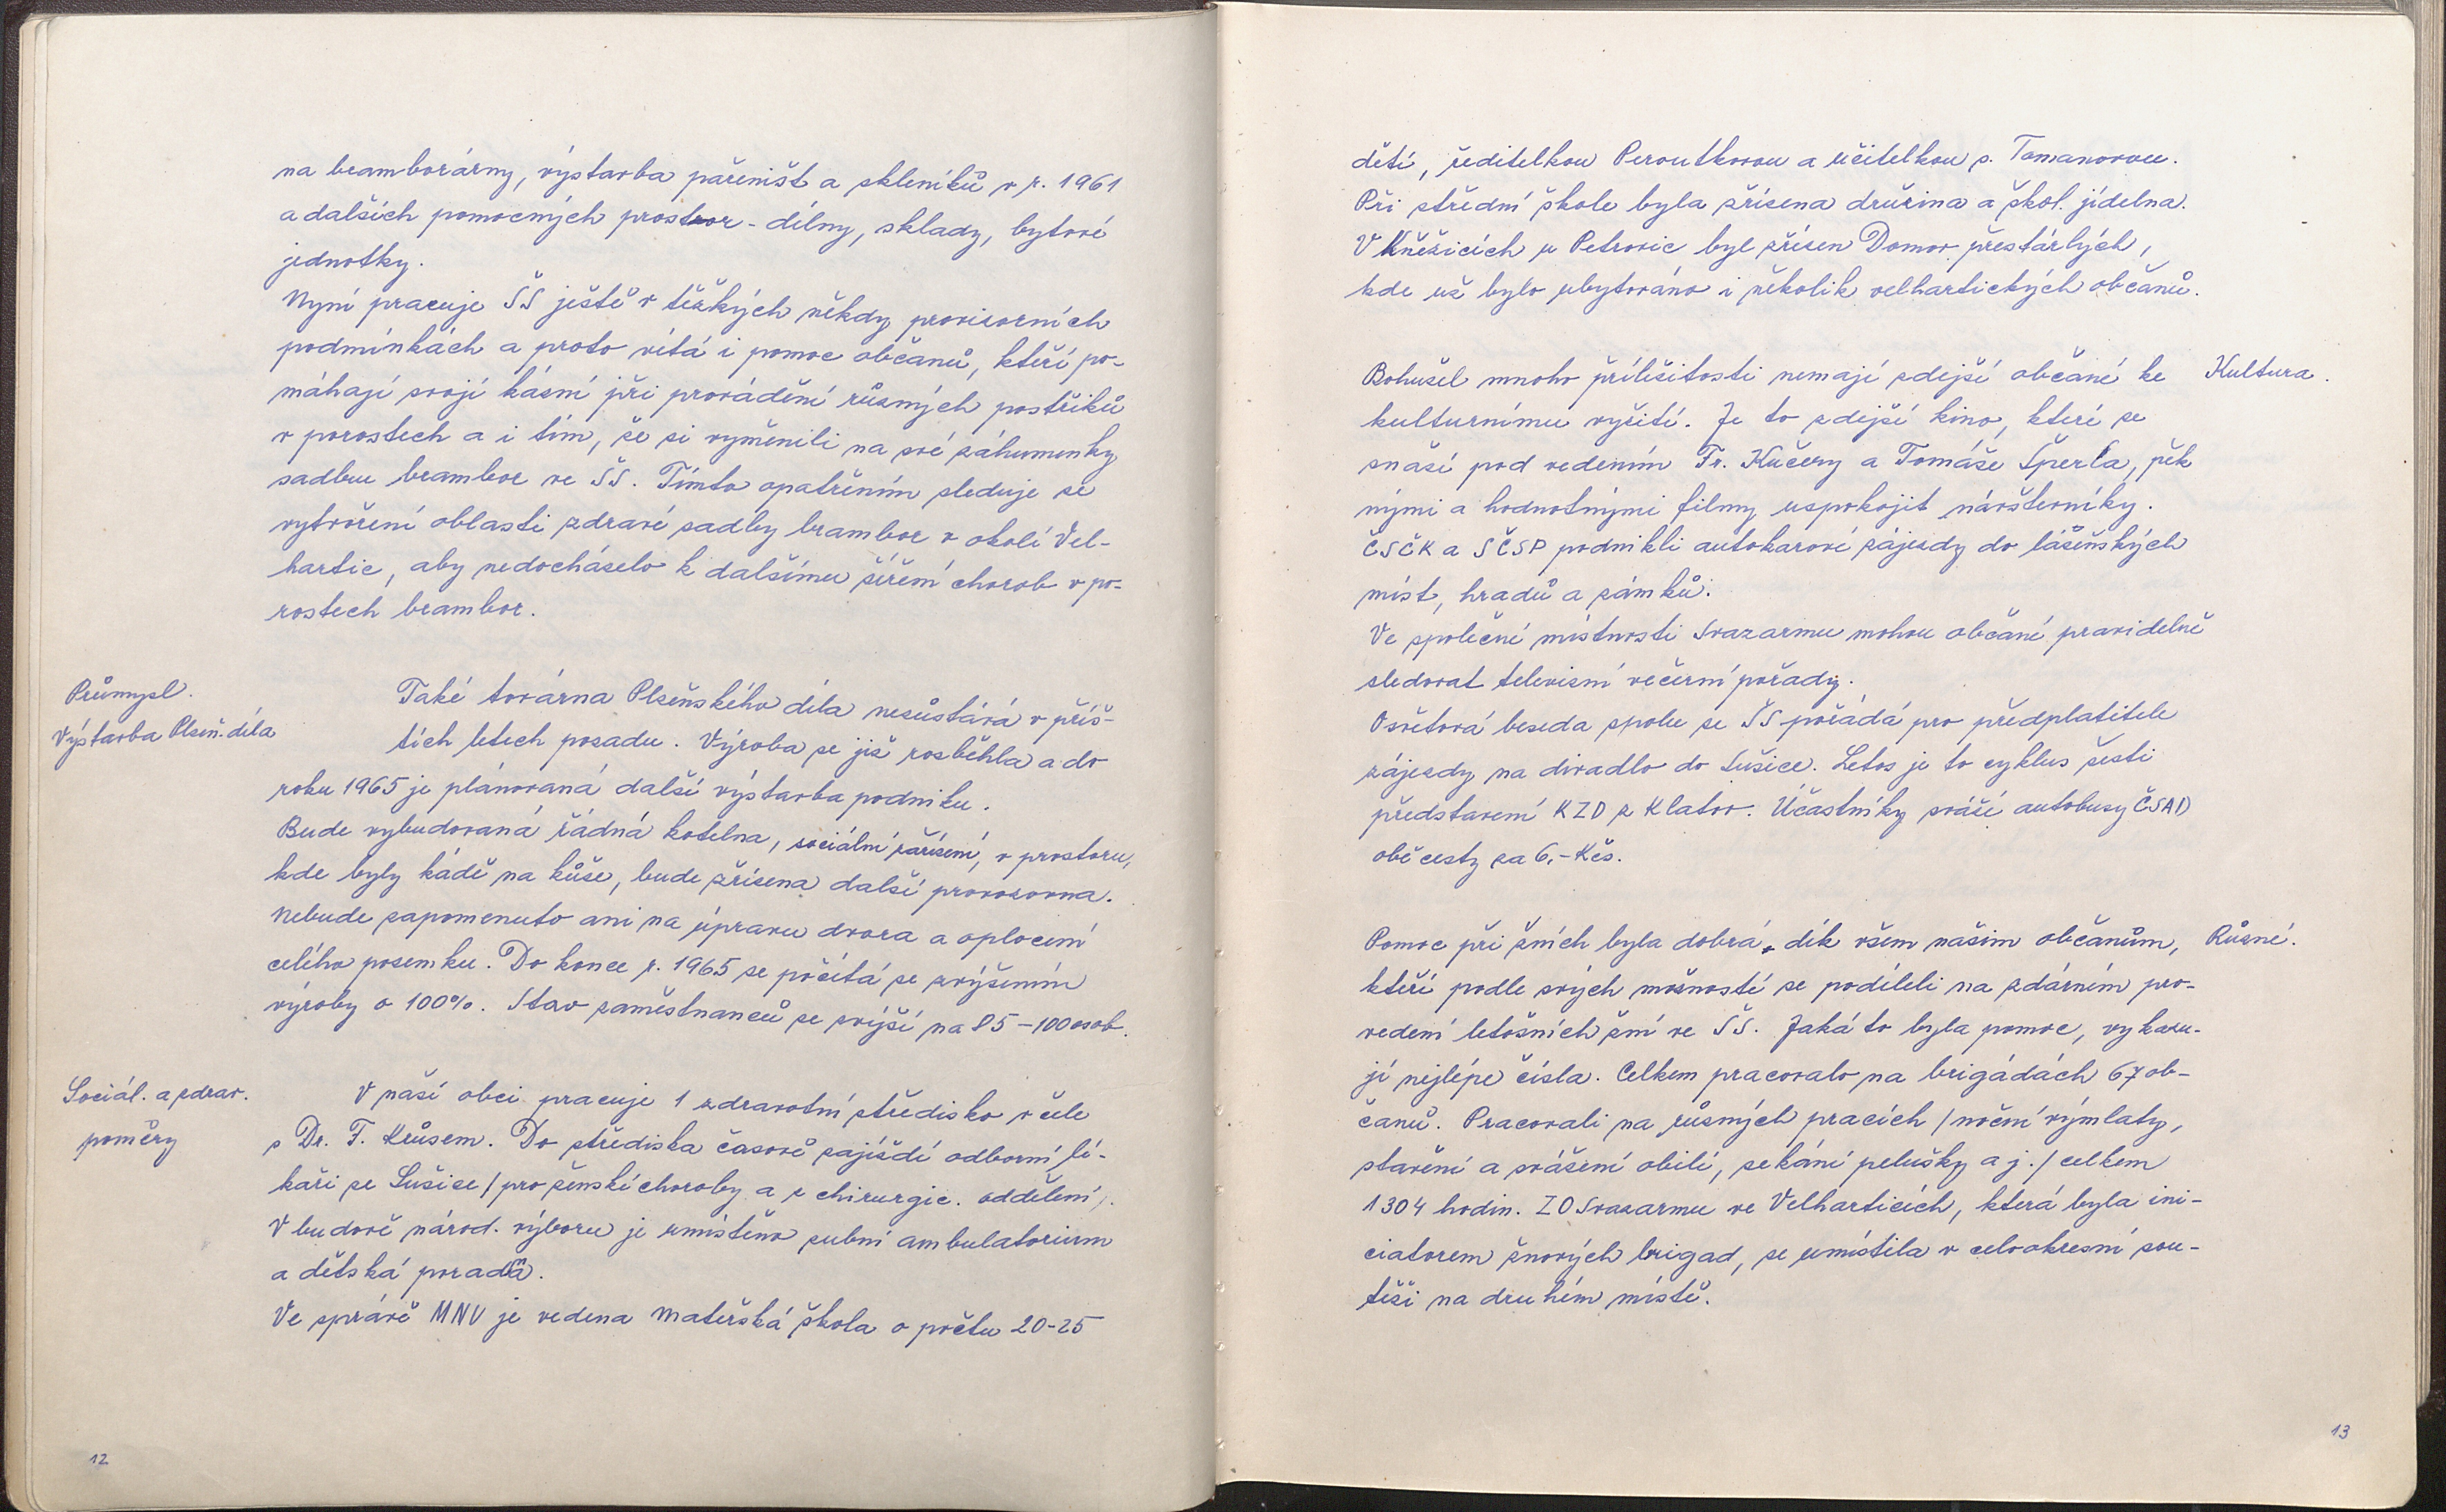 na bramborárny, výstavba pařenišť a skleníků v r. 1961
a dalších pomocných prostor - dílny, sklady, bytové
jednotky.
Nyní pracuje ŠS ještě v těžkých někdy provisorních
podmínkách a proto vítá i pomoc občanů, kteří po-
máhají svojí kázní při provádění různých postřiků
v porostech a i tím, že si vyměnili na své záhumenky
sadbu brambor ve ŠS. Tímto opatřením sleduje se
vytvoření oblasti zdravé sadby brambor v okolí Vel-
hartic, aby nedocházelo k dalšímu šíření chorob v po-
rostech brambor.
Průmysl.
Výstavba Plzeň. díla
Také továrna Plzeňského díla nezůstává v příš-
tích letech pozadu. Výroba se již rozběhla a do
roku 1965 je plánovaná další výstavba podniku.
Bude vybudovaná řádná kotelna, sociální zařízení, v prostoru,
kde byly kádě na kůže, bude zřízena další provozovna.
Nebude zapomenuto ani na úpravu dvora a oplocení
celého pozemku. Do konce r. 1965 se počítá se zvýšením
výroby o 100%. Stav zaměstnanců se zvýší na 85 - 100 osob.
Sociál. a zdrav.
poměry
V naší obci pracuje 1 zdravotní středisko v čele
s Dr. F. Krůsem. Do střediska časově zajíždí odborní lé-
kaři ze Sušice / pro ženské choroby a z chirurgic. oddělení /.
V budově národ. výboru je umístěno zubní ambulatorium
a dětská poradna.
Ve správě MNV je vedena mateřská škola o počtu 20-25
12
dětí, ředitelkou Peroutkovou a učitelkou s. Tomanovou.
Při střední škole byla zřízena družina a škol. jídelna.
V Kněžicích u Petrovic byl zřízen Domov přestárlých,
kde už bylo ubytováno i několik velhartických občanů.
Kultura.
Bohužel mnoho příležitosti nemají zdejší občané ke
kulturnímu vyžití. Je to zdejší kino, které se
snaží pod vedením Fr. Kučery a Tomáše Šperla, pěk
nými a hodnotnými filmy uspokojit návštevníky.
ČSČK a SČSP podnikli autokarové zájezdy do lázeňských
míst, hradů a zámků.
Ve společné místnosti Svazarmu mohou občané pravidelně
sledovat televisní večerní pořady.
Osvětová beseda spolu se ŠS pořádá pro předplatitele
zájezdy na divadlo do Sušice. Letos je to cyklus šesti
představení KZD z Klatov. Účastníky sváží autobusy ČSAD
obě cesty za 6,- Kčs.
Různé.
Pomoc při žních byla dobrá, dík všem našim občanům,
kteří podle svých možností se podíleli na zdárném pro-
vedení letošních žní ve ŠS. Jaká to byla pomoc, vykazu-
jí nejlépe čísla. Celkem pracovalo na brigádách 67 ob-
čanů. Pracovali na různých pracích / noční výmlaty,
stavění a svážení obilí, sekání pelušky a j. / celkem
1304 hodin. ZO Svazarmu ve Velharticích, která byla ini-
ciatorem žnových brigad, se umístila v celookresní sou-
těži na druhém místě.
13